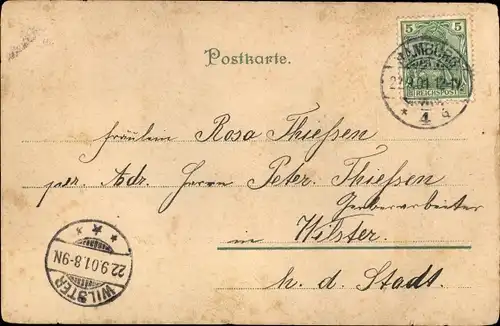 5 5
REICHSPOST
HAMBURG
22.9.01. 12-1V.
* 4 d
Postkarte.
Fräulein Rosa Thießen
per. Adr. Herrn Peter Thießen
Gerberarbeiter
in Wilster.
h. d. Stadt.
WILSTER
22.9.01.8-9N.